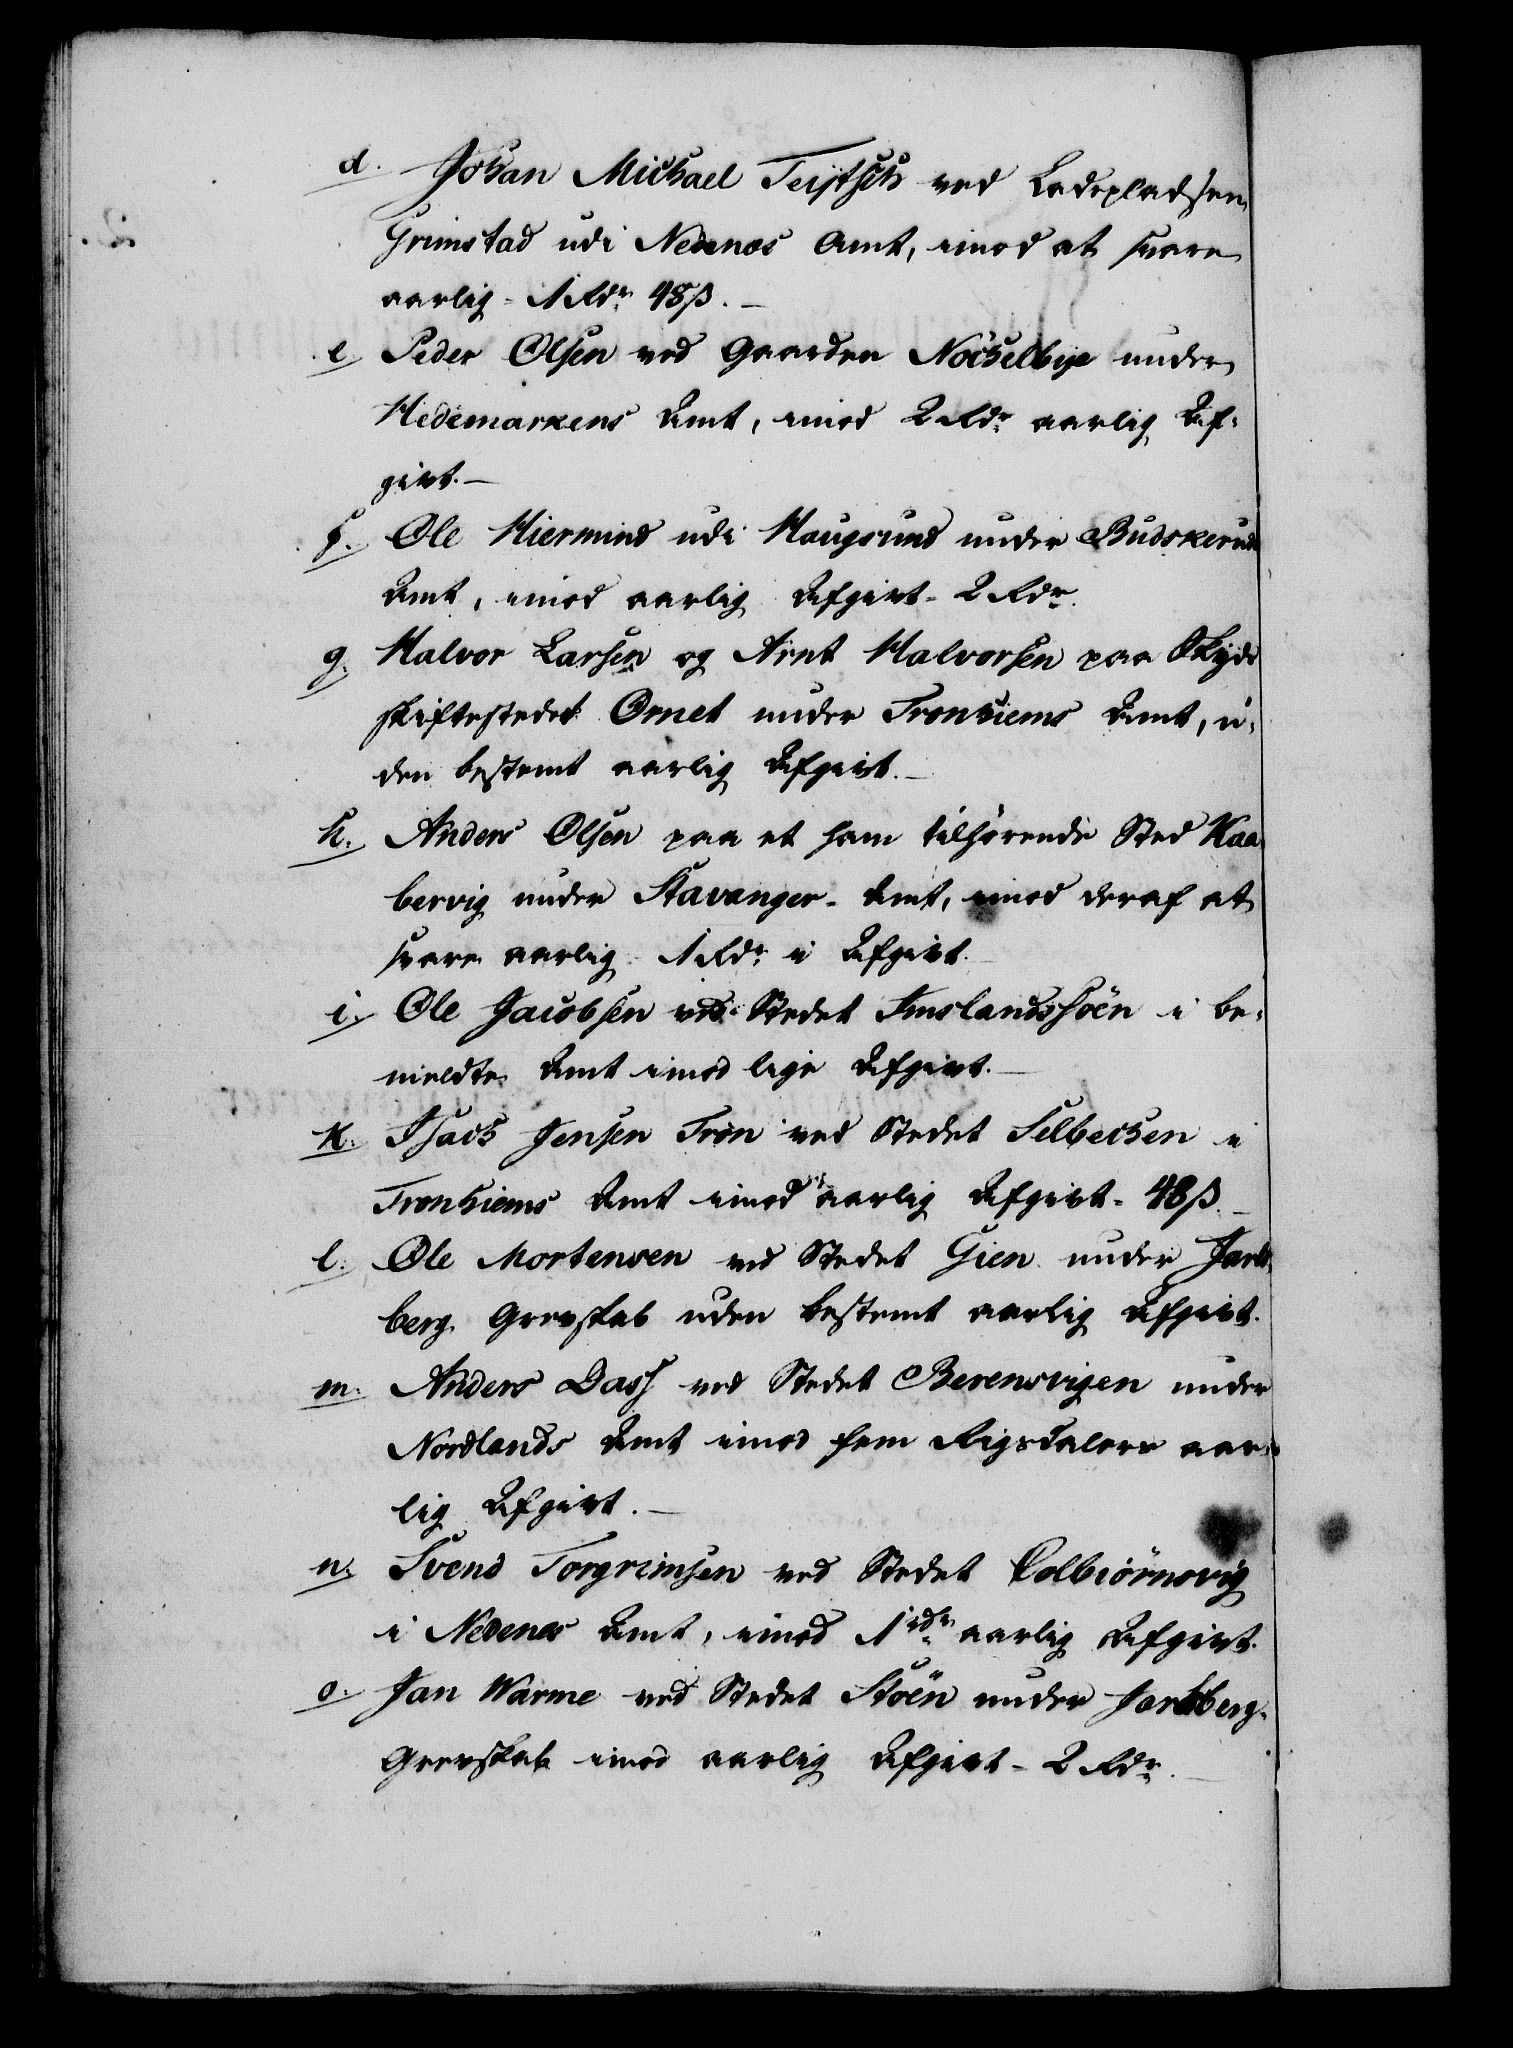 d. Johan Michael Teistsch ved Ladepladsen
Grimstad udi Nedenæs Amt, imod at svare
aarlig - 1 Rdr 48 ß. —
e. Peder Olsen ved Gaarden Nöchelbye under
Hedemarkens Amt, imod 2 Rdr aarlig Af-
givt. —
f. Ole Hiermind udi Haugsund under Budskeruds
Amt, imod aarlig Afgivt - 2 Rdr.
g. Halvor Larsen og Arnt Halvorsen paa Skyds
skiftestedet Ornet under Tronhiems Amt, u-
den bestemt aarlig Afgivt. —
h. Anders Olsen paa et ham tilhörende Sted Kaa-
bervig under Stavanger - Amt, imod deraf at
svare aarlig 1 Rdr i Afgivt. —
i. Ole Jacobsen ved Stedet Imslandssöen i be-
meldte Amt imod lige Afgivt. —
k. Isach Jensen Tron ved Stedet Selbechen i
Tronhiems Amt imod aarlig Afgivt - 48 ß. —
l. Ole Mortensen ved Stedet Gien under Jarls-
berg Grevskab uden bestemt aarlig Afgivt.
m. Anders Dass ved Stedet Berensvigen under
Nordlands Amt imod fem Rigsdalers aar-
lig Afgivt. —
n. Svend Torgrimsen ved Stedet Colbiörnsvig
i Nedenæs Amt, imod 1 rdr aarlig Afgivt.
o. Jan Warme ved Stedet Stöen under Jarlsberg-
Grevskab imod aarlig Afgivt - 2 Rdr. —